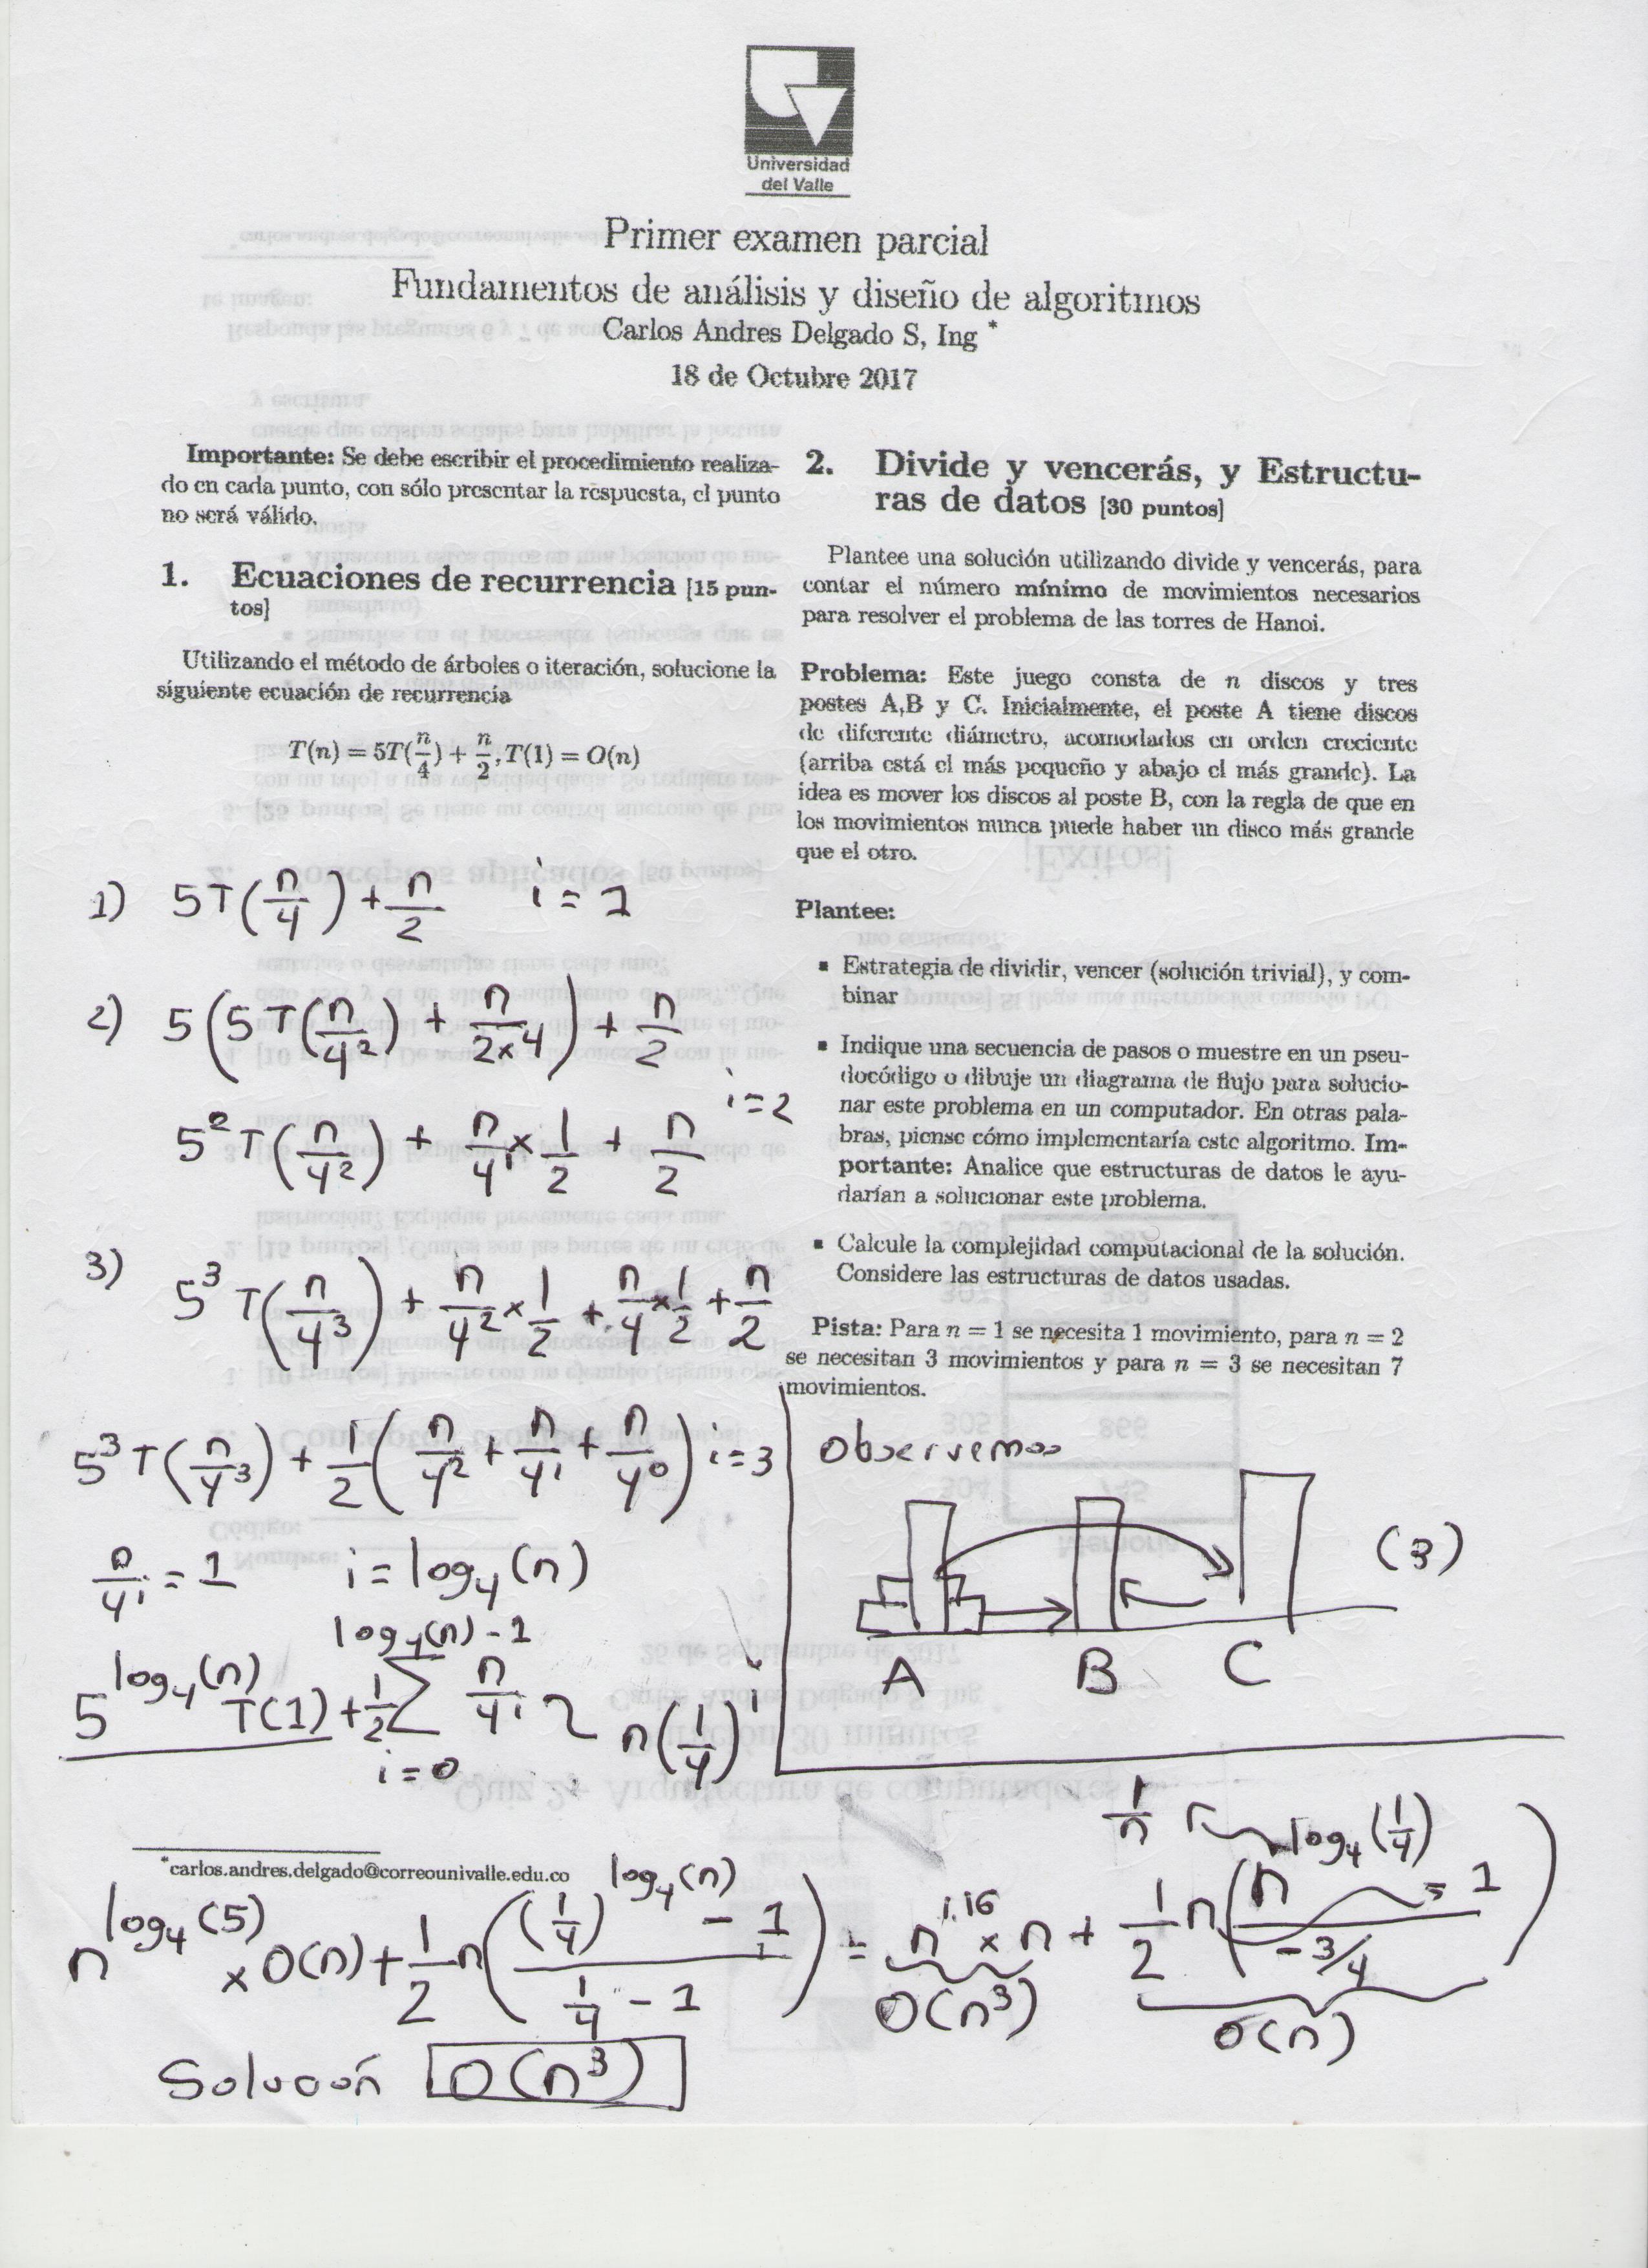 Universidad
del Valle
Primer examen parcial
Fundamentos de análisis y diseño de algoritmos
Carlos Andres Delgado S, Ing *
18 de Octubre 2017
Importante: Se debe escribir el procedimiento realiza-
do en cada punto, con sólo presentar la respuesta, el punto
no será válido.
1. Ecuaciones de recurrencia [15 pun-
tos]
Utilizando el método de árboles o iteración, solucione la
siguiente ecuación de recurrencia
T(n) = 5T(n/4) + n/2, T(1) = O(n)
1) 5T(n/4) + n/2 i = 1
2) 5(5T(n/4²) + n/(2×4)) + n/2
5² T(n/4²) + n/4¹ × 1/2 + n/2 i=2
3) 5³ T(n/4³) + n/4² × 1/2 + n/4 × 1/2 + n/2
5³ T(n/4³) + 1/2 (n/4² + n/4¹ + n/4⁰) i=3
n/4^i = 1 i = log₄(n)
5^(log₄(n)) T(1) + 1/2 Σ_(i=0)^(log₄(n) - 1) n/4^i n(1/4)^i
*carlos.andres.delgado@correounivalle.edu.co
2. Divide y vencerás, y Estructu-
ras de datos [30 puntos]
Plantee una solución utilizando divide y vencerás, para
contar el número mínimo de movimientos necesarios
para resolver el problema de las torres de Hanoi.
Problema: Este juego consta de n discos y tres
postes A,B y C. Inicialmente, el poste A tiene discos
de diferente diámetro, acomodados en orden creciente
(arriba está el más pequeño y abajo el más grande). La
idea es mover los discos al poste B, con la regla de que en
los movimientos nunca puede haber un disco más grande
que el otro.
Plantee:
▪ Estrategia de dividir, vencer (solución trivial), y com-
binar
▪ Indique una secuencia de pasos o muestre en un pseu-
docódigo o dibuje un diagrama de flujo para solucio-
nar este problema en un computador. En otras pala-
bras, piense cómo implementaría este algoritmo. Im-
portante: Analice que estructuras de datos le ayu-
darían a solucionar este problema.
▪ Calcule la complejidad computacional de la solución.
Considere las estructuras de datos usadas.
Pista: Para n = 1 se necesita 1 movimiento, para n = 2
se necesitan 3 movimientos y para n = 3 se necesitan 7
movimientos.
Observemos
(3)
A B C
1/n
n^(log₄(5)) × O(n) + 1/2 n(((1/4)^(log₄(n)) - 1)/(1/4 - 1)) = n^1.16 × n + 1/2 n((n^(log₄(1/4)) = 1)/(-3/4))
O(n³) O(n)
Solución O(n³)